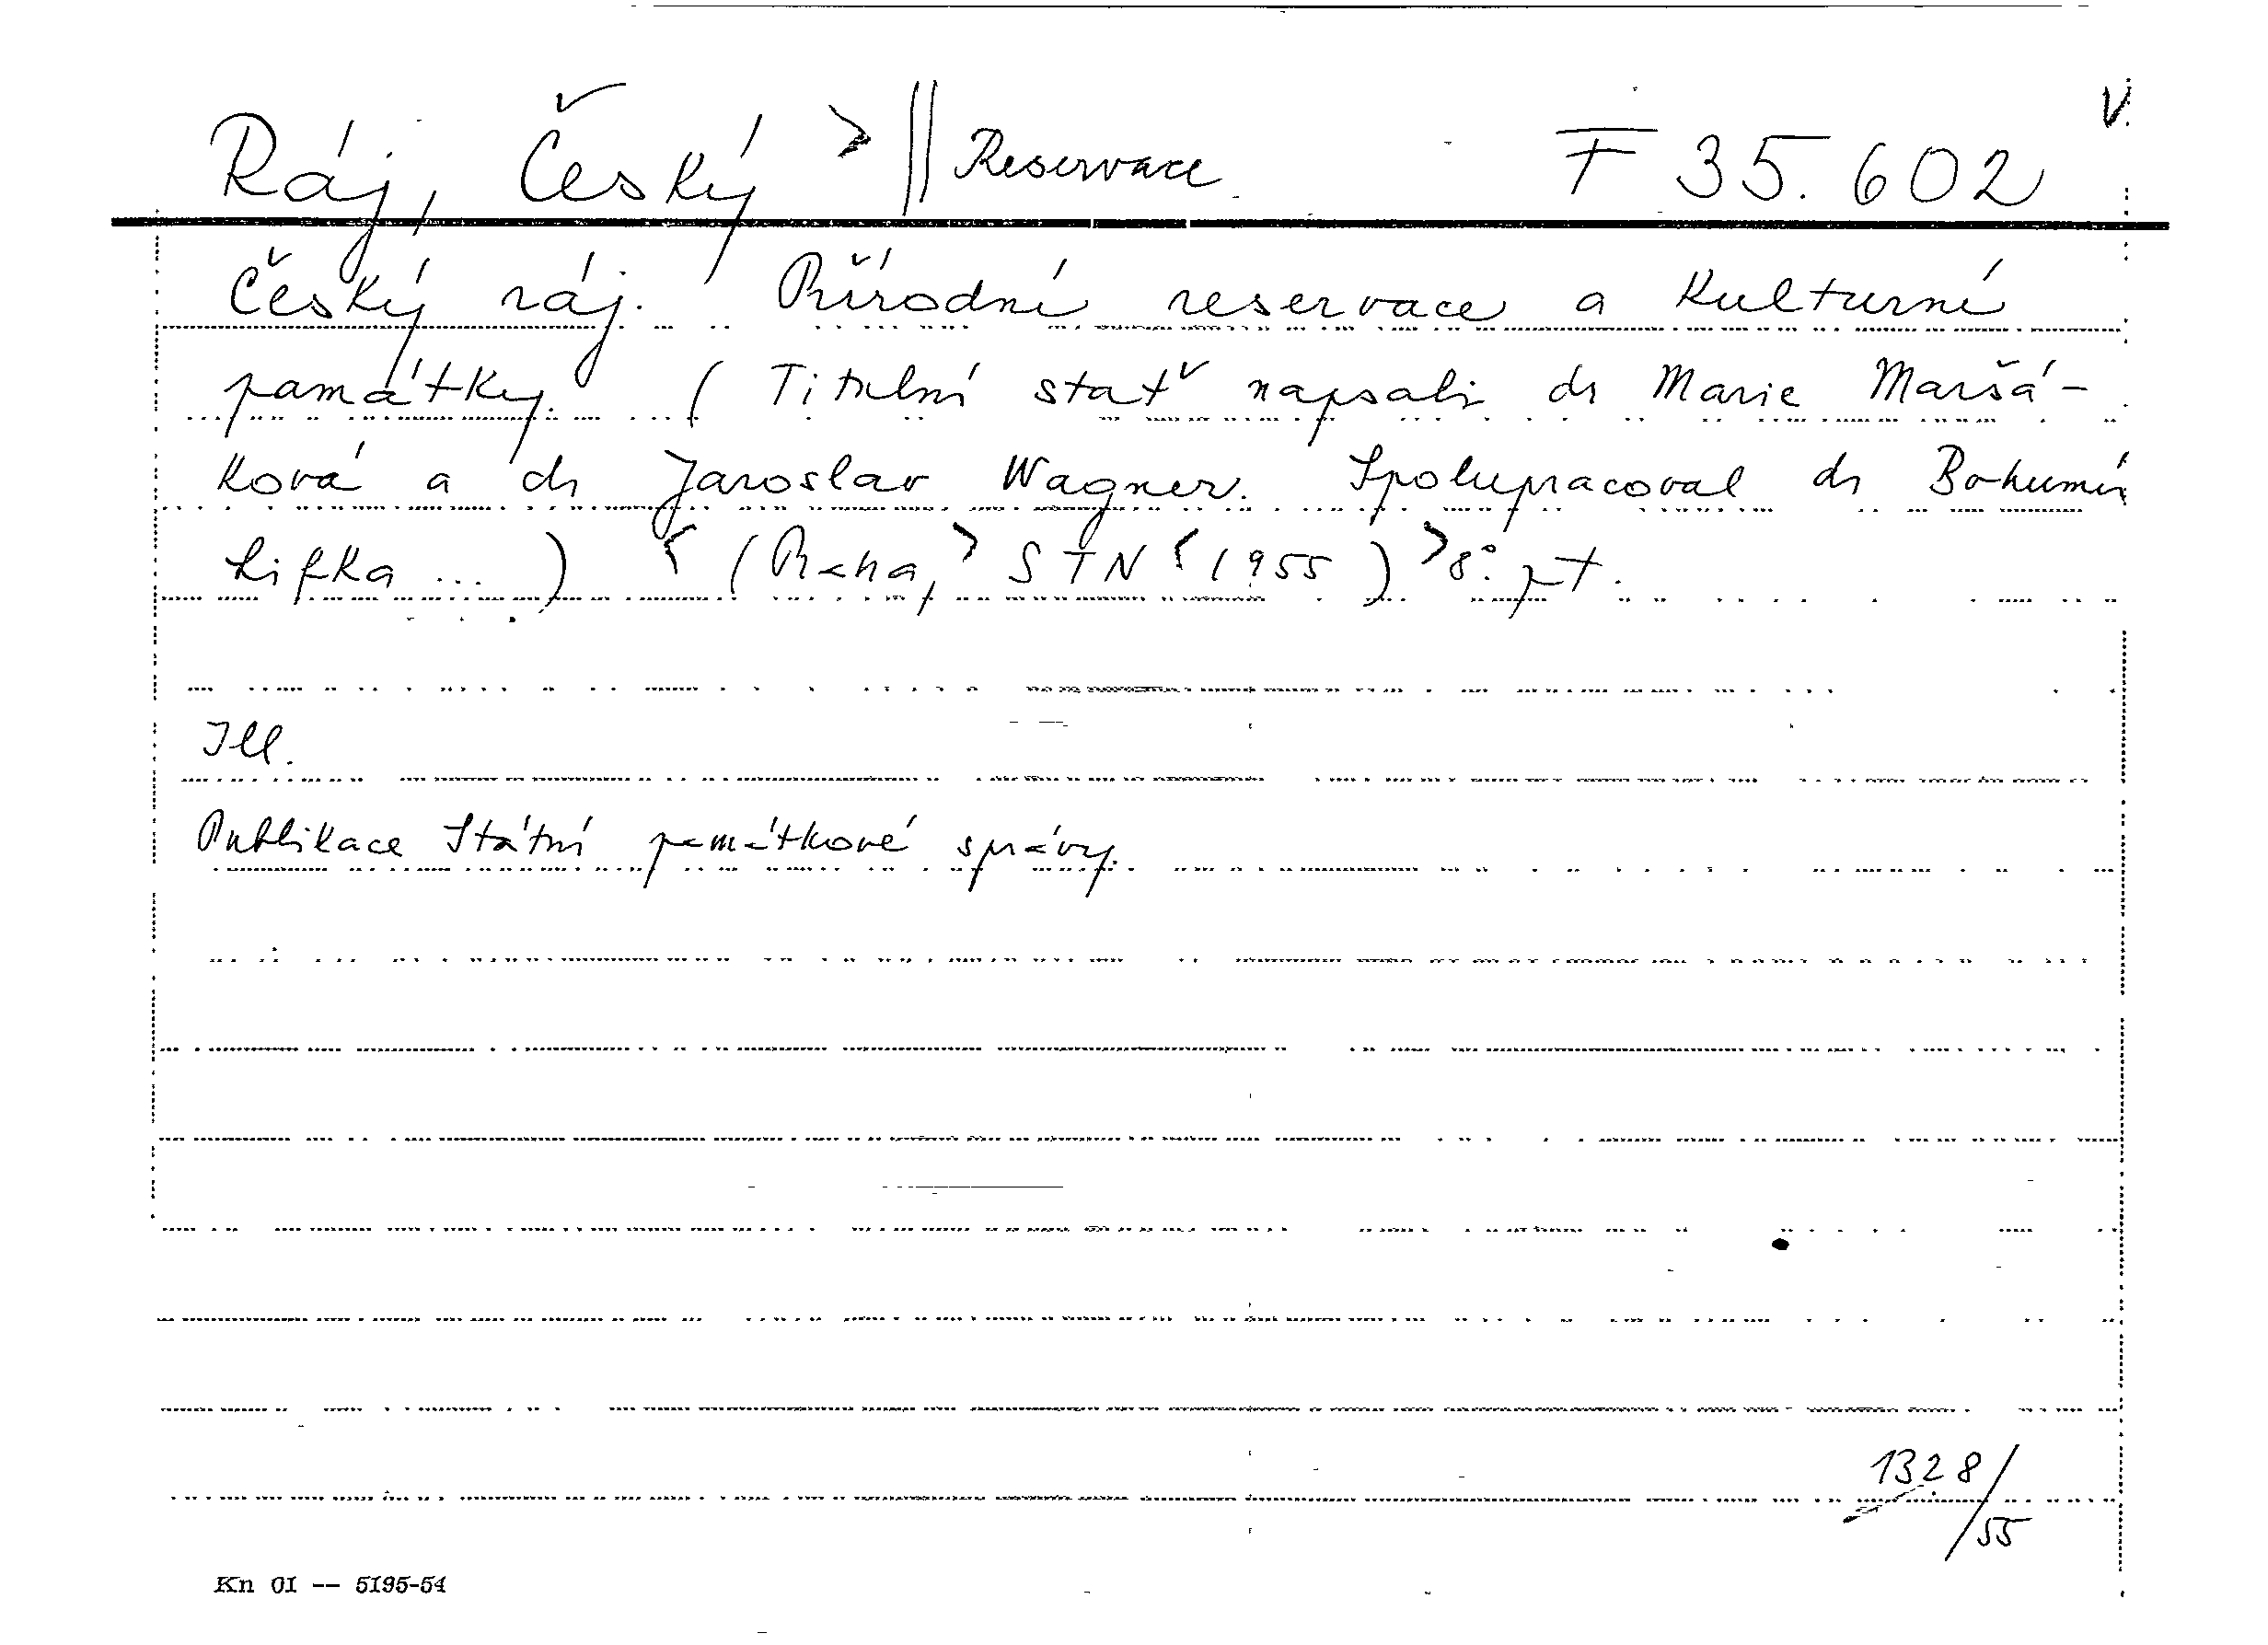 Ráj, Český > || Reservace F 35.602 V.
Český ráj. Přírodní reservace a kulturní
památky. (Titulní stať napsali dr Marie Maršá-
ková a dr Jaroslav Wagner. Spolupracoval dr Bohumír
Lifka ...) < (Praha, > STN < 1955) > 8° pt.
Ill.
Publikace Státní památkové správy.
1328/55
Kn 01 -- 5195-54